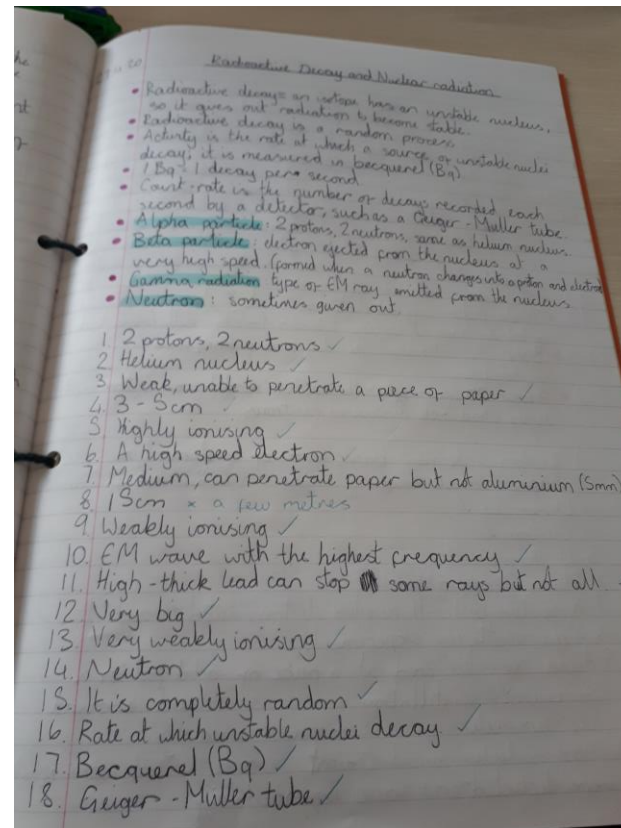 Radioactive Decay and Nuclear radiation
• Radioactive decay = an isotope has an unstable nucleus,
so it gives out radiation to become stable.
• Radioactive decay is a random process
• Activity is the rate at which a source of unstable nuclei
decay, it is measured in becquerel (Bq)
• 1 Bq = 1 decay per second
• Count-rate is the number of decays recorded each
second by a detector, such as a Geiger-Muller tube.
• Alpha particle: 2 protons, 2 neutrons, same as helium nucleus.
• Beta particle: electron ejected from the nucleus at a
very high speed. (formed when a neutron changes into a proton and electron
• Gamma radiation type of EM ray emitted from the nucleus.
• Neutron: sometimes given out.
1. 2 protons, 2 neutrons ✓
2. Helium nucleus ✓
3. Weak, unable to penetrate a piece of paper ✓
4. 3-5cm ✓
5. Highly ionising ✓
6. A high speed electron ✓
7. Medium, can penetrate paper but not aluminium (5mm)
8. 15cm × a few metres
9. Weakly ionising ✓
10. EM wave with the highest frequency ✓
11. High-thick lead can stop some rays but not all
12. Very big ✓
13. Very weakly ionising ✓
14. Neutron ✓
15. It is completely random ✓
16. Rate at which unstable nuclei decay ✓
17. Becquerel (Bq) ✓
18. Geiger-Muller tube ✓